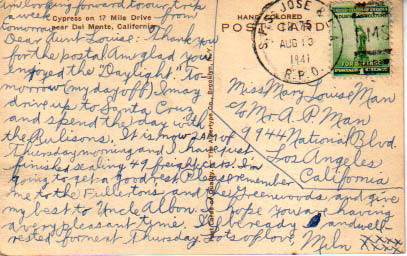 am looking forward to our trip
a week from
tomorrow.
Cypress on 17 Mile Drive
near Del Monte, California
Dear Aunt Louise: Thank you
for the postal. Am glad you
enjoyed the "Daylight". To-
morrow (my day off) I may
drive up to Santa Cruz
and spend the day with
the Aulisons. It is now 2 A.M. of
Thursday morning and I have just
finished sealing 49 freight cars. I'm
going to get a good rest. Please remember
me to the Fullertons and the Greenwoods and give
my best to Uncle Albon. I hope you are having
a very pleasant time. I'll be ready and well
rested for next Thursday. Lots of love, Mln xxxx
HAND COLORED
POST CARD
SAN JOSE &
AUG 13
1941
R.P.O.
1¢
Miss Mary Louise Man
c/o Mr. A. P. Man
9944 National Blvd.
Los Angeles
California